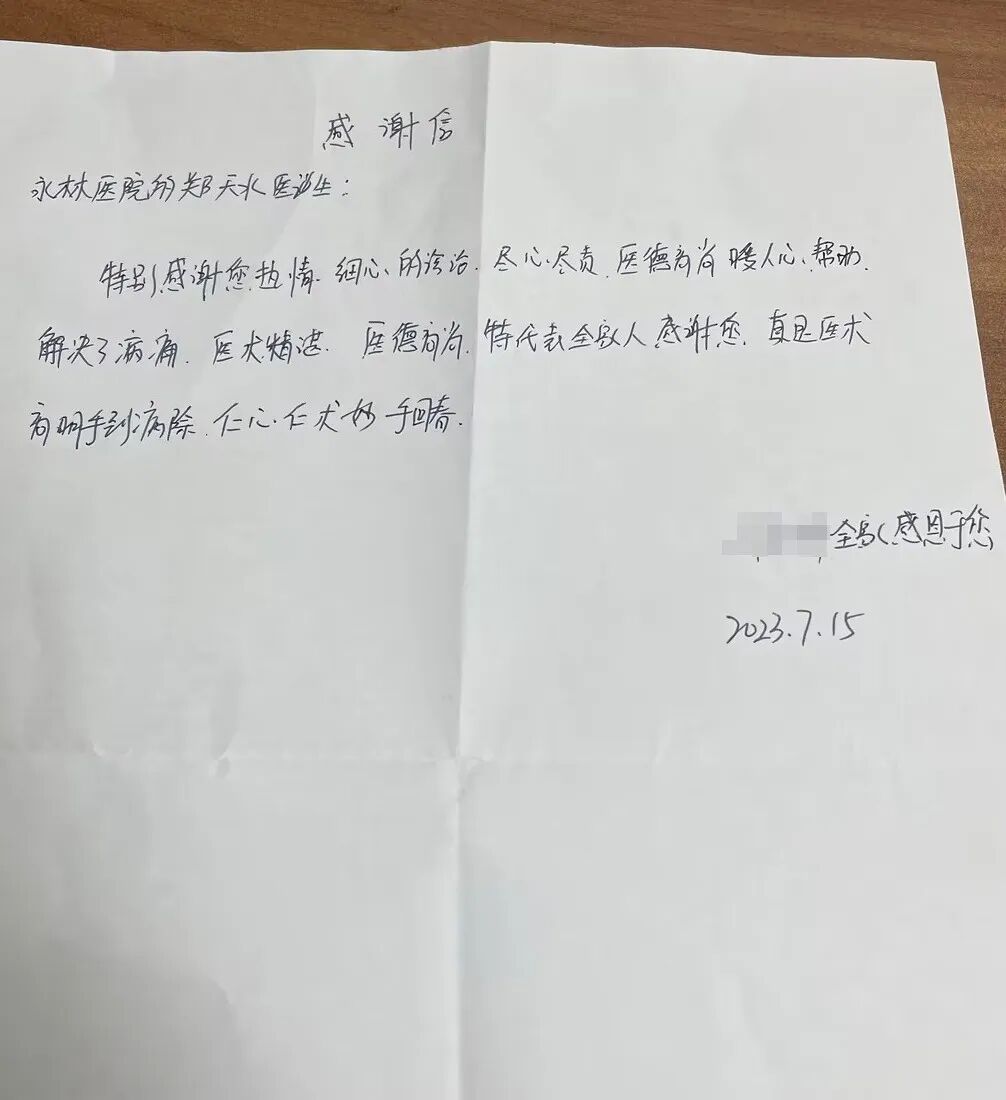 感谢信
永林医院的郑天水医生:
特别感谢您热情.细心的诊治.尽心尽责.医德高尚暖人心.帮助.
解决了病痛.医术精湛.医德高尚.特代表全家人感谢您.真是医术
高明手到病除.仁心仁术妙手回春.
全家感恩于您
2023.7.15